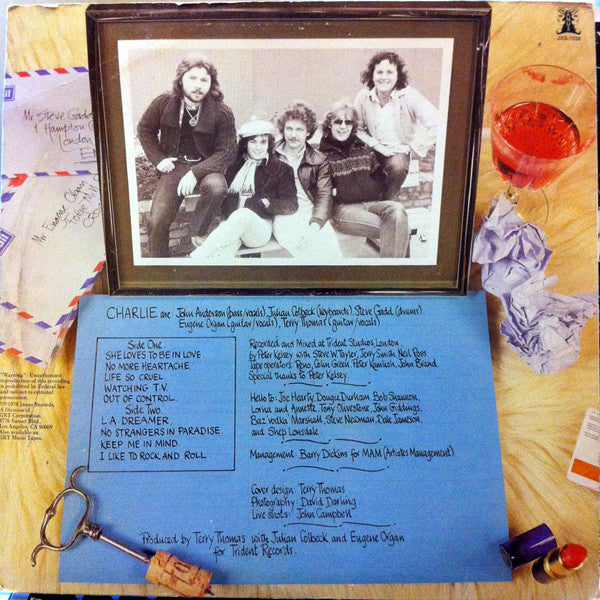 JXS-7036
Mr Steve Gadd
1 Hampton
London
Mr Eugene
CHARLIE are John Anderson (bass/vocals) Julian Colbeck (keyboards) Steve Gadd (drums)
Eugene Organ (guitar/vocals), Terry Thomas (guitar/vocals)
Side One
SHE LOVES TO BE IN LOVE
NO MORE HEARTACHE
LIFE SO CRUEL
WATCHING T.V.
OUT OF CONTROL
Side Two
L.A. DREAMER
NO STRANGERS IN PARADISE
KEEP ME IN MIND
I LIKE TO ROCK AND ROLL
Recorded and Mixed at Trident Studios, London
by Peter Kelsey with Steve W Taylor, Jerry Smith Neil Ross
Tape operators: Reno, Colin Green Peter Kamlish, John Brand
Special thanks to Peter Kelsey.
Hello to: Joe Hearty, Dougie Durham, Bob Shannon,
Lorna and Annette, Tony Olivestone, John Giddings,
Baz vodka Marshall, Steve Newman, Dale Jameson
and Shep Lonsdale
Management: Barry Dickins for MAM (Artistes Management)
Cover design: Terry Thomas
Photography: David Darling
Live shots: John Campbell
Produced by Terry Thomas with Julian Colbeck and Eugene Organ
for Trident Records.
"Warning": Unauthorized
reproduction of this recording
is prohibited by Federal law
and subject to criminal
prosecution.
1978 Janus Records,
A Division of
GRT Corporation,
8776 Sunset Blvd.
Los Angeles, CA 90069
Also available on
GRT Music Tapes.